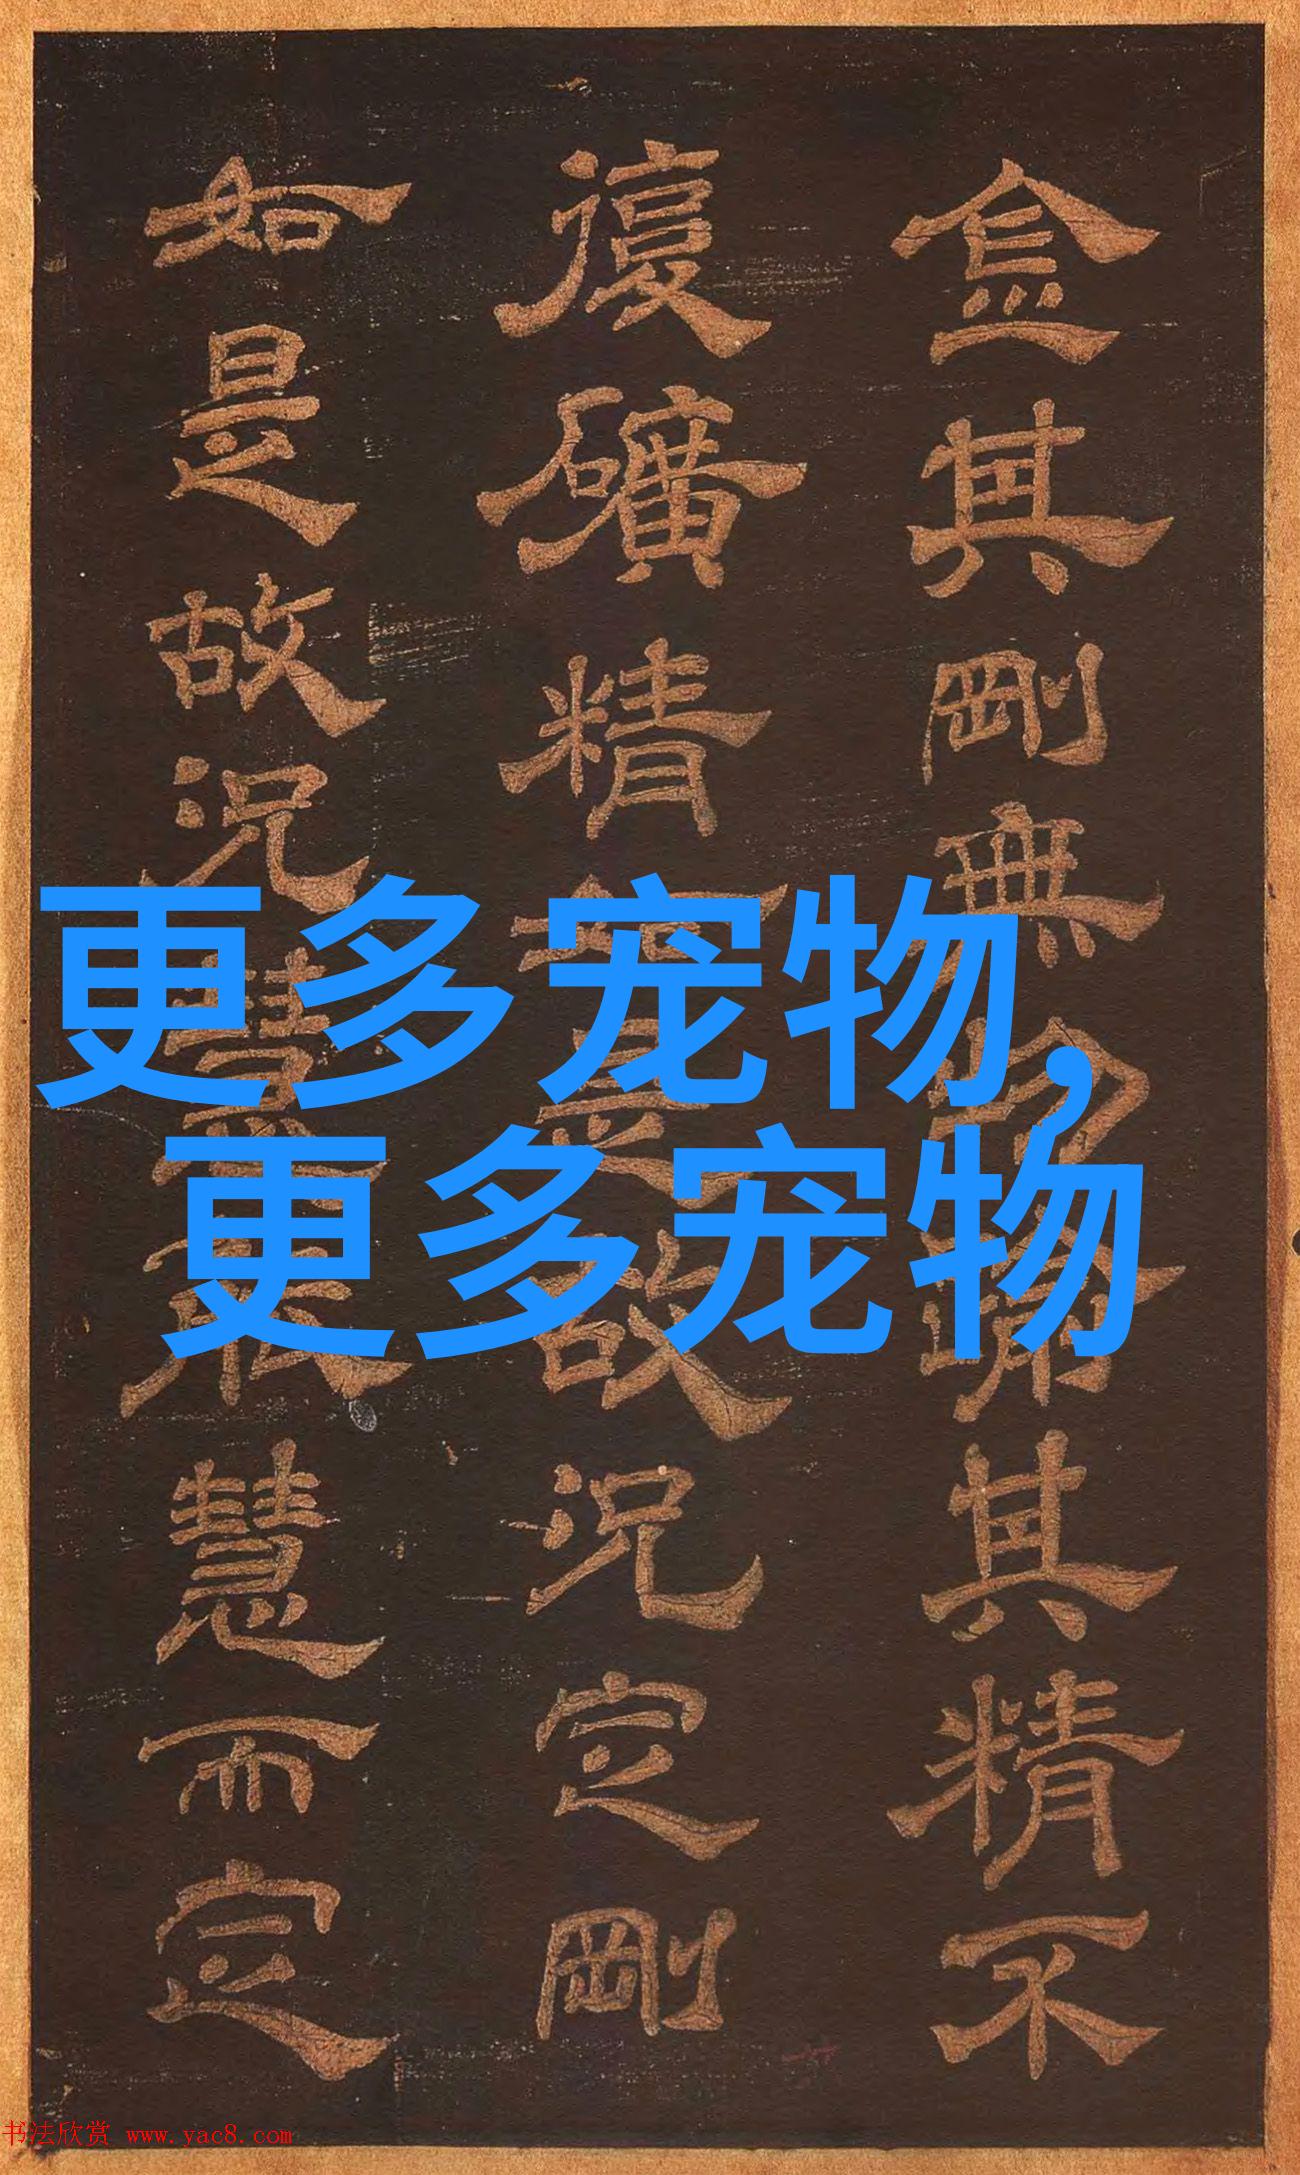 金其剛無其精不
復礦精如是故況定剛
如是故況慧慧而定
更多宠物,
更多宠物
书法欣赏 www.yac8.com